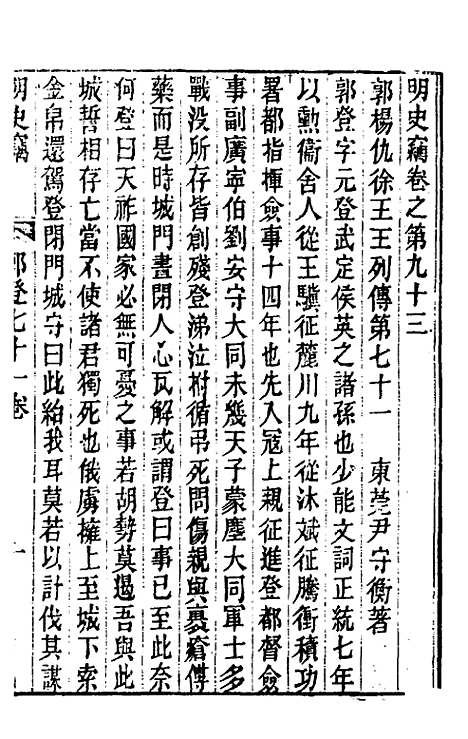 明史竊卷之第九十三
郭楊仇徐王王列傳第七十一　東莞尹守衡著
郭登字元登武定侯英之諸孫也少能文詞正統七年
以勲衞舍人從王驥征麓川九年從沐斌征騰衝積功
署都指揮僉事十四年也先入寇上親征進登都督僉
事副廣寧伯劉安守大同未幾天子蒙塵大同軍士多
戰没所存皆創殘登涕泣拊循弔死問傷親與裹瘡傅
藥而是時城門晝閉人心瓦解或謂登曰事已至此奈
何登曰天祚國家必無可憂之事若胡勢莫遏吾與此
城誓相存亡當不使諸君獨死也俄虜擁上至城下索
金帛還駕登閉門城守曰此紿我耳莫若以計伐其謀
明史竊　郭登七十一卷　一